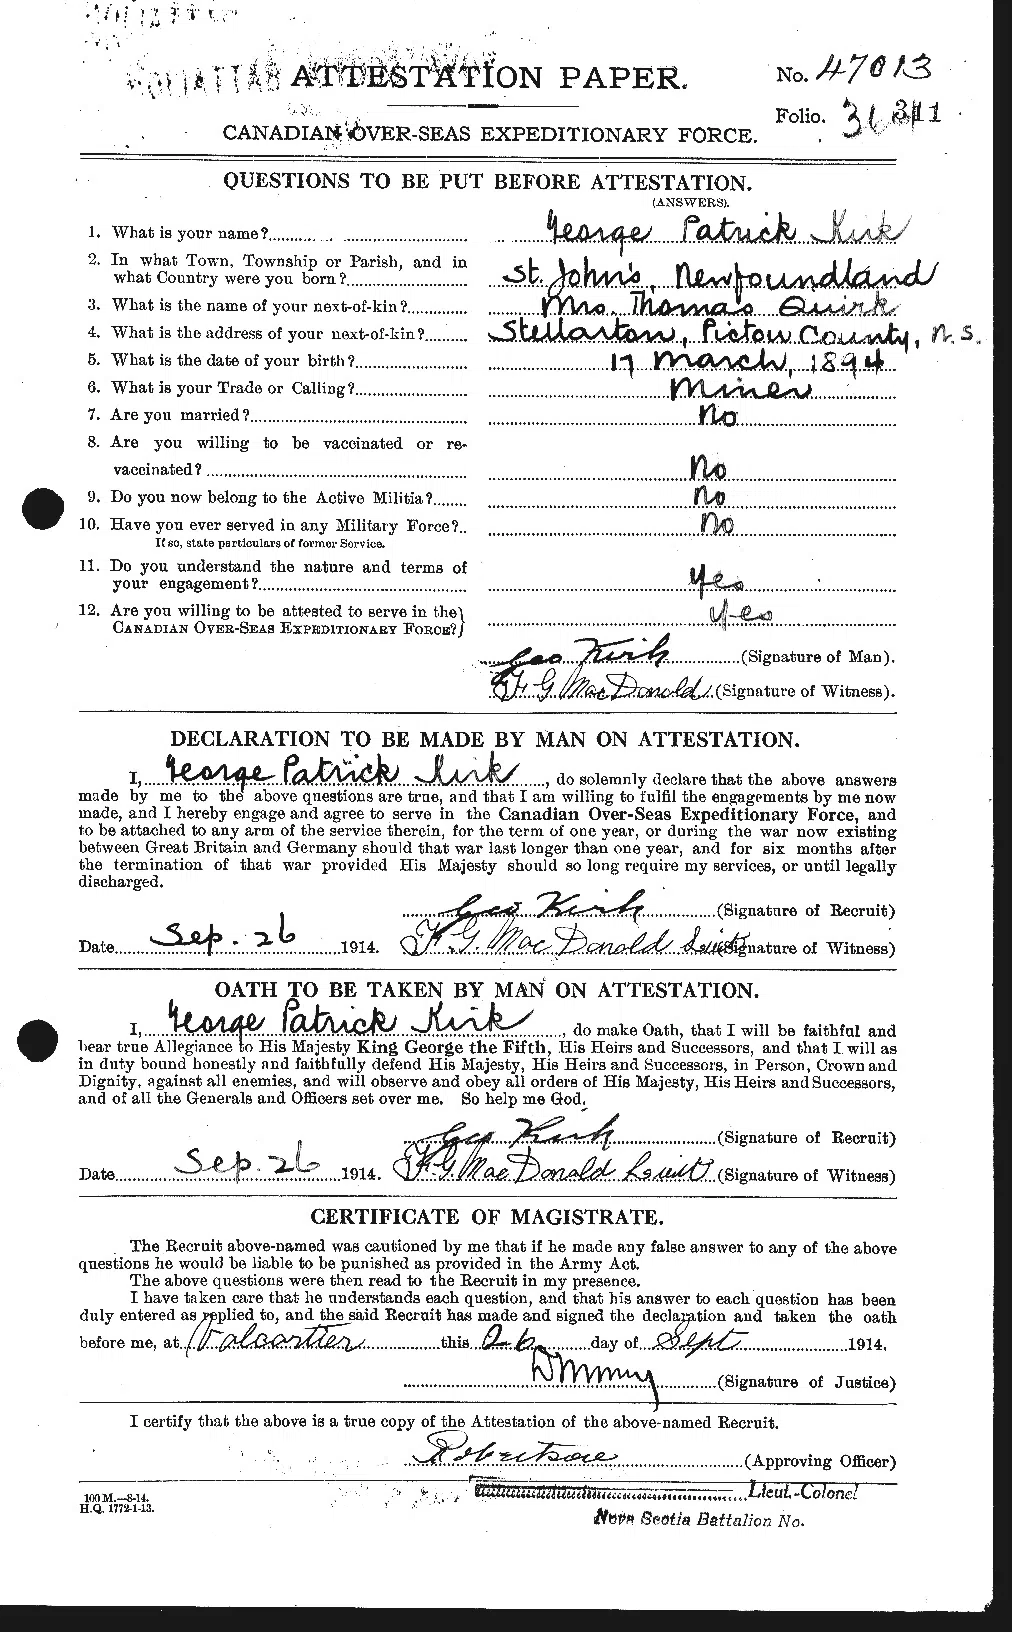 ATTESTATION PAPER.
No. 47013
Folio. 311
CANADIAN OVER-SEAS EXPEDITIONARY FORCE.
QUESTIONS TO BE PUT BEFORE ATTESTATION.
(ANSWERS).
1. What is your name? George Patrick Kirk
2. In what Town, Township or Parish, and in
what Country were you born? St. John's, Newfoundland
3. What is the name of your next-of-kin? Mrs. Thomas Quirk
4. What is the address of your next-of-kin? Stellarton, Pictou County, N.S.
5. What is the date of your birth? 17 March, 1894
6. What is your Trade or Calling? Miner
7. Are you married? No
8. Are you willing to be vaccinated or re-
vaccinated? No
9. Do you now belong to the Active Militia? No
10. Have you ever served in any Military Force? No
If so, state particulars of former Service.
11. Do you understand the nature and terms of
your engagement? Yes
12. Are you willing to be attested to serve in the
CANADIAN OVER-SEAS EXPEDITIONARY FORCE? Yes
Geo Kirk (Signature of Man).
F. G. MacDonald (Signature of Witness).
DECLARATION TO BE MADE BY MAN ON ATTESTATION.
I, George Patrick Kirk, do solemnly declare that the above answers
made by me to the above questions are true, and that I am willing to fulfil the engagements by me now
made, and I hereby engage and agree to serve in the Canadian Over-Seas Expeditionary Force, and
to be attached to any arm of the service therein, for the term of one year, or during the war now existing
between Great Britain and Germany should that war last longer than one year, and for six months after
the termination of that war provided His Majesty should so long require my services, or until legally
discharged.
Geo Kirk (Signature of Recruit)
Date Sep. 26 1914. F. G. MacDonald Lieut (Signature of Witness)
OATH TO BE TAKEN BY MAN ON ATTESTATION.
I, George Patrick Kirk, do make Oath, that I will be faithful and
bear true Allegiance to His Majesty King George the Fifth, His Heirs and Successors, and that I will as
in duty bound honestly and faithfully defend His Majesty, His Heirs and Successors, in Person, Crown and
Dignity, against all enemies, and will observe and obey all orders of His Majesty, His Heirs and Successors,
and of all the Generals and Officers set over me. So help me God.
Geo Kirk (Signature of Recruit)
Date Sep. 26 1914. F. G. MacDonald Lieut (Signature of Witness)
CERTIFICATE OF MAGISTRATE.
The Recruit above-named was cautioned by me that if he made any false answer to any of the above
questions he would be liable to be punished as provided in the Army Act.
The above questions were then read to the Recruit in my presence.
I have taken care that he understands each question, and that his answer to each question has been
duly entered as replied to, and the said Recruit has made and signed the declaration and taken the oath
before me, at Valcartier this 26 day of Sept 1914.
(Signature of Justice)
I certify that the above is a true copy of the Attestation of the above-named Recruit.
Robertson (Approving Officer)
100 M.—8-14.
H.Q. 1772-1-13.
Lieut.-Colonel
Nova Scotia Battalion No.